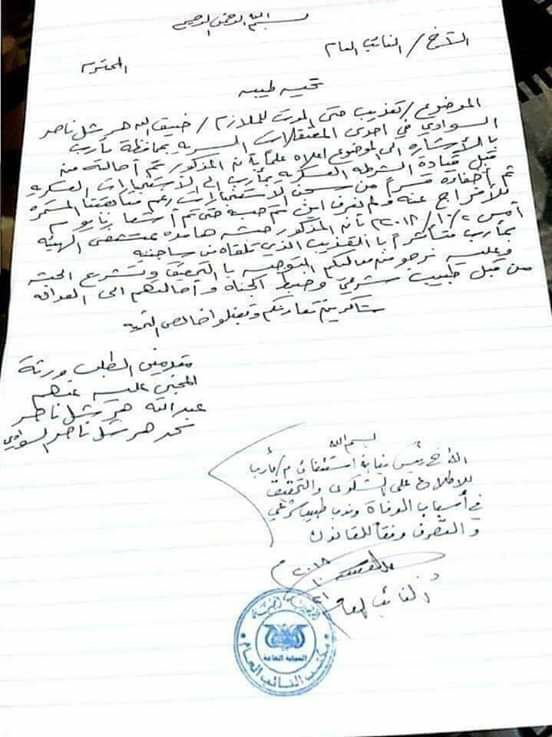 بسم الله الرحمن الرحيم
الأخ / النائب العام المحترم
تحيه طيبه
الموضوع / تعذيب حتى الموت للملازم / ضيف الله هرشل ناصر
السوادي في احدى المعتقلات السريه بمحافظة مأرب
بالأشاره الى الموضوع اعلاه علماً بأنه المذكور تم أحالته من
قبل قيادة الشرطه العسكريه بمأرب الى الأستخبارات العسكريه
ثم أخفاه قسراً من سجن الأستخبارات رغم متابعتنا المستمره
للأفراج عنه ولم نعرف اين تم حبسه حتى تم أشعارنا يوم
أمس ٢٠١٨/١٠/٢ بأن المذكور جثه هامده بمستشفى الهيئه
بمأرب متأثراً بالتعذيب الذي تلقاه من
وعليه نرجو من معاليكم التوجيه بالتحقيق وتشريح الجثه
من قبل طبيب شرعي وضبط الجناه وأحالتهم الى العداله
شاكرين تعاونكم وتقبلوا خالص التحيه
مقدمين الطلب ورثة
المجني عليه عنهم
عبدالله هرشل ناصر
محمد هرشل ناصر السوادي
بسم الله
الأخ رئيس نيابة استئناف م/ مأرب
للاطلاع على الشكوى والتحقيق
في أسباب الوفاة وندب طبيب شرعي
والتصرف وفقاً للقانون
٢٠١٨م
النائب العام
الجمهورية اليمنية
النيابة العامة
مكتب النائب العام